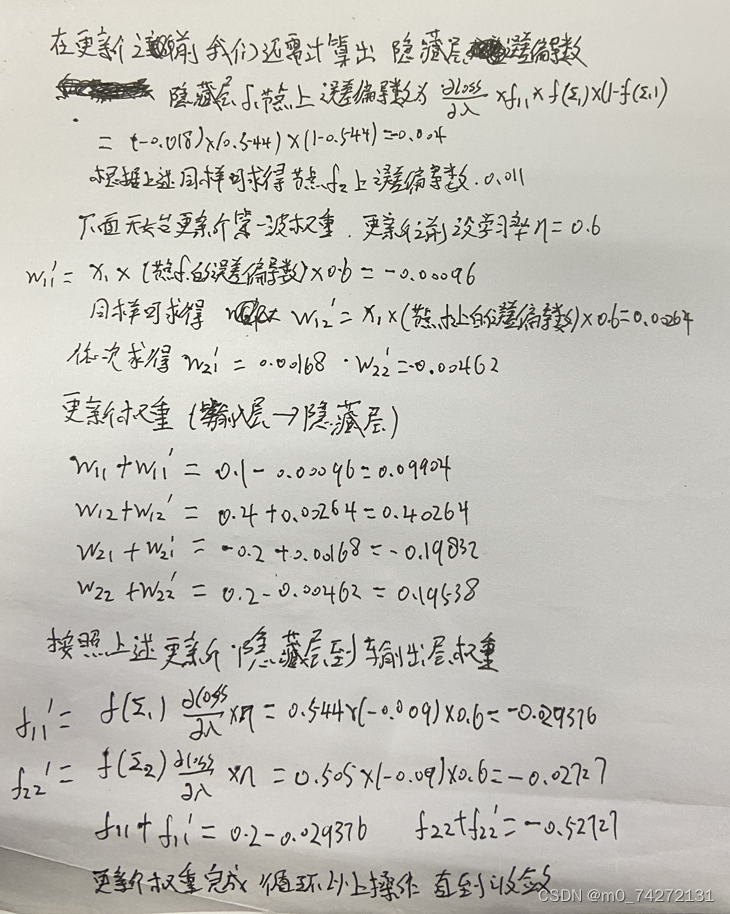 在更新之前 我们还需计算出 隐藏层 误差偏导数
隐藏层f₁节点上误差偏导数为 ∂loss/∂λ ×f₁₁×f(Σ₁)×(1-f(Σ₁))
= (-0.018)×(0.544)×(1-0.544)=-0.004
根据上述同样可求得节点f₂上误差偏导数.0.011
下面开始更新第一波权重.更新之前设学习率η=0.6
w₁₁' = x₁×(节点f₁的误差偏导数)×0.6=-0.00096
同样可求得 w₁₂'=x₁×(节点f₂上的误差偏导数)×0.6=0.00264
依次求得 w₂₁' = 0.00168 . w₂₂'=-0.00462
更新权重(输入层→隐藏层)
w₁₁+w₁₁' = 0.1-0.00096=0.09904
w₁₂+w₁₂' = 0.4+0.00264=0.40264
w₂₁+w₂₁' = -0.2+0.00168=-0.19832
w₂₂+w₂₂' = 0.2-0.00462=0.19538
按照上述更新隐藏层到输出层权重
f₁₁' = f(Σ₁) ∂loss/∂λ ×η = 0.544×(-0.009)×0.6=-0.029376
f₂₂' = f(Σ₂) ∂loss/∂λ ×η = 0.505×(-0.09)×0.6=-0.02727
f₁₁+f₁₁' = 0.2-0.029376 f₂₂+f₂₂'=-0.52727
更新权重完成 循环以上操作 直到收敛
CSDN @m0_74272131